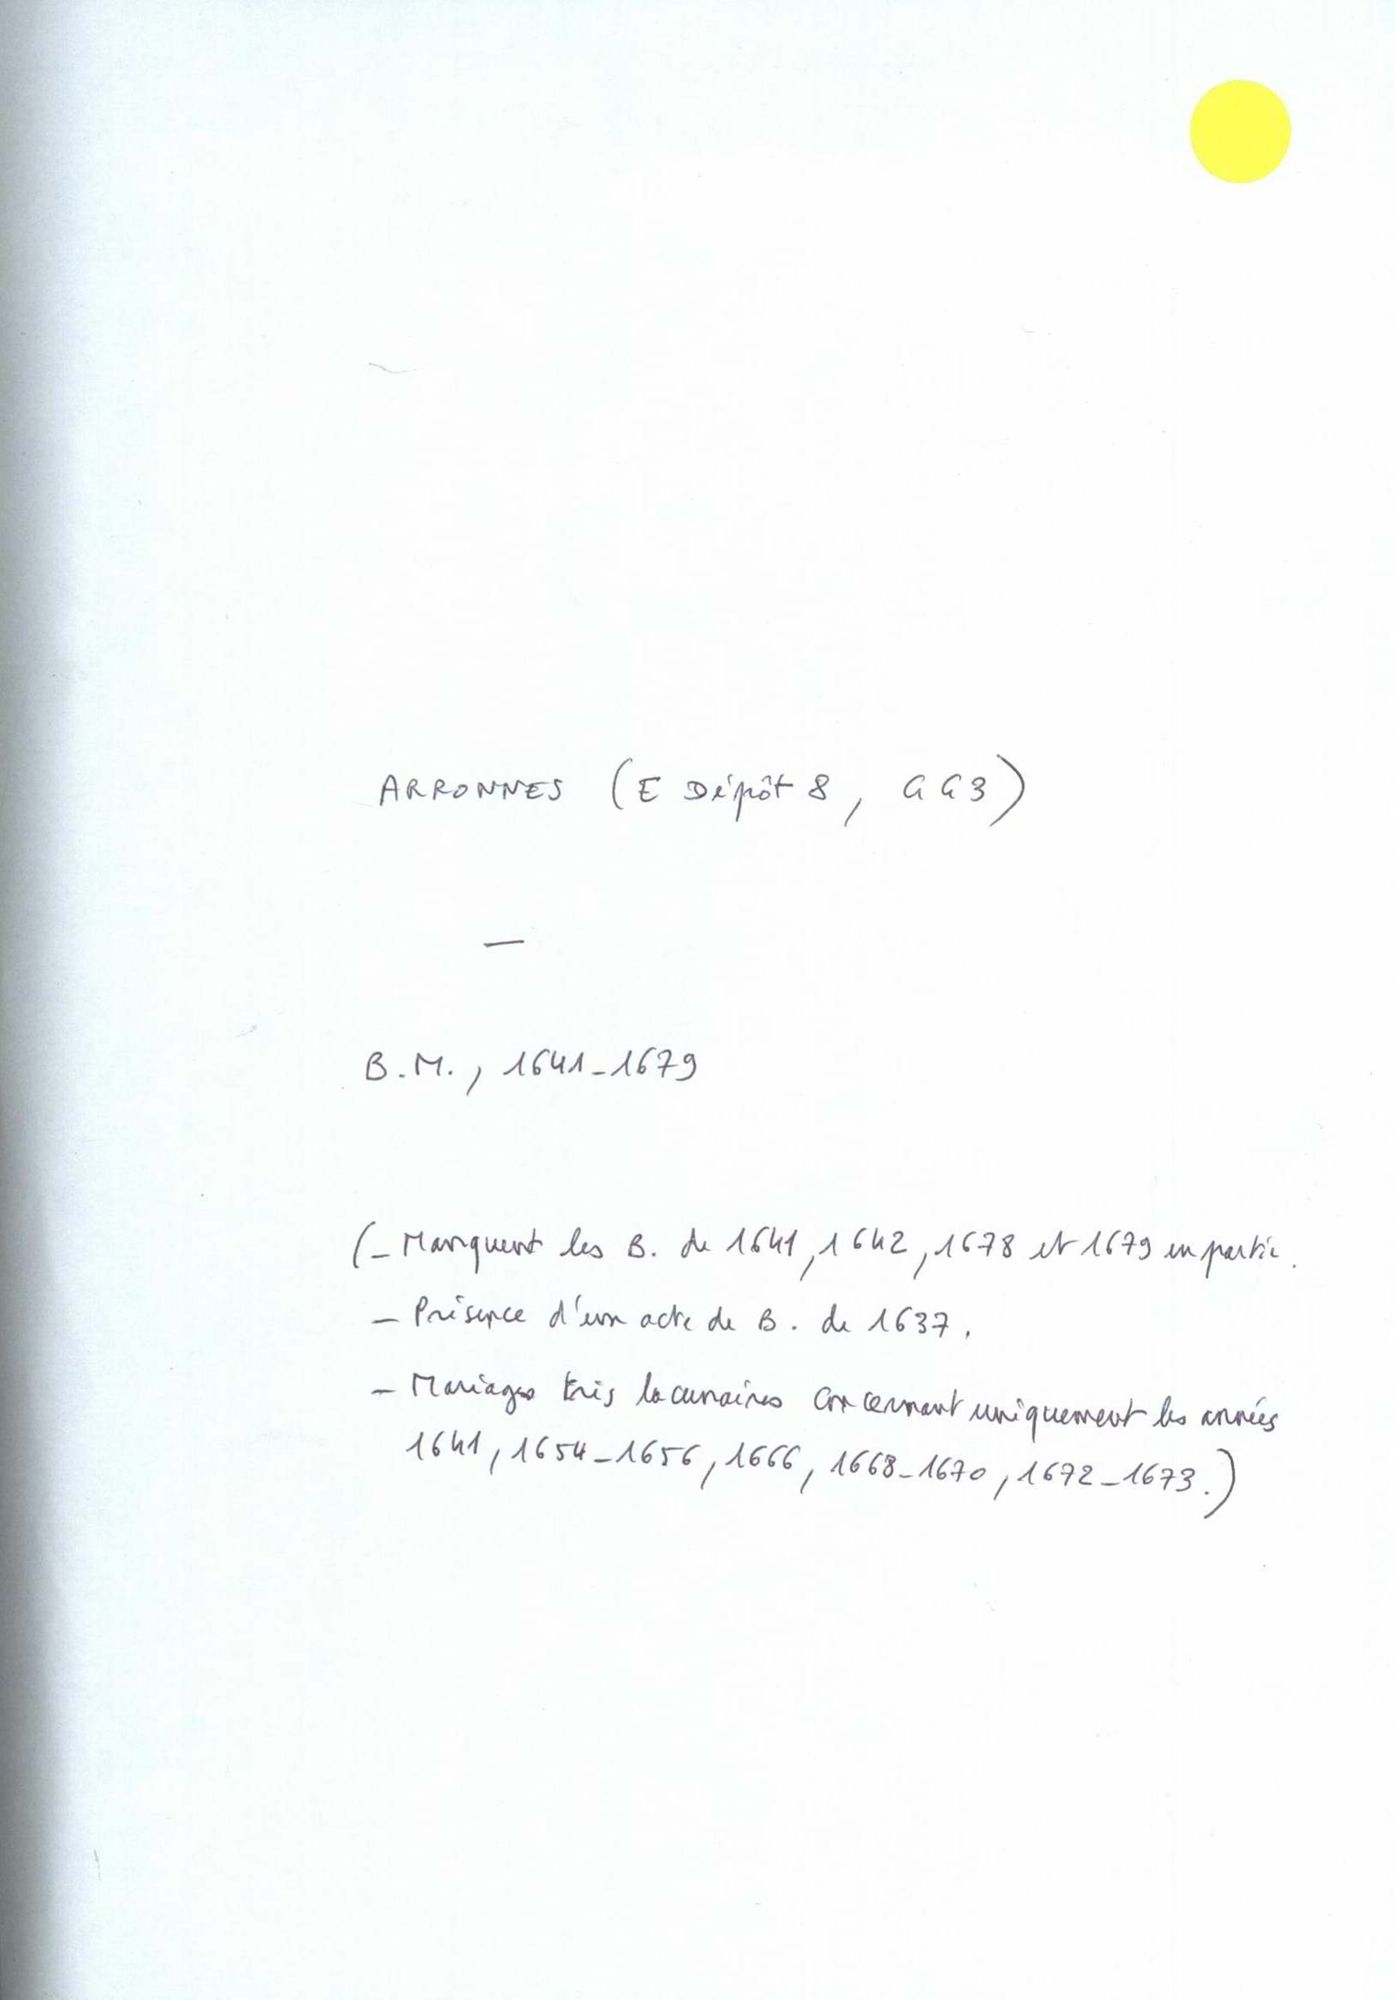 ARRONNES (E Dépôt 8, GG3)
—
B.M., 1641-1679
(- Manquent les B. de 1641, 1642, 1678 et 1679 en partie.
- Présence d'un acte de B. de 1637.
- Mariages très lacunaires concernant uniquement les années
1641, 1654-1656, 1666, 1668-1670, 1672-1673.)